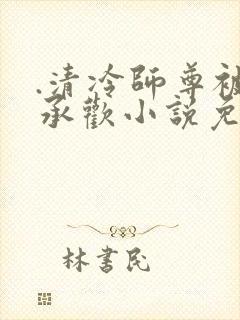 .清冷師尊被
承歡小說免
林書民